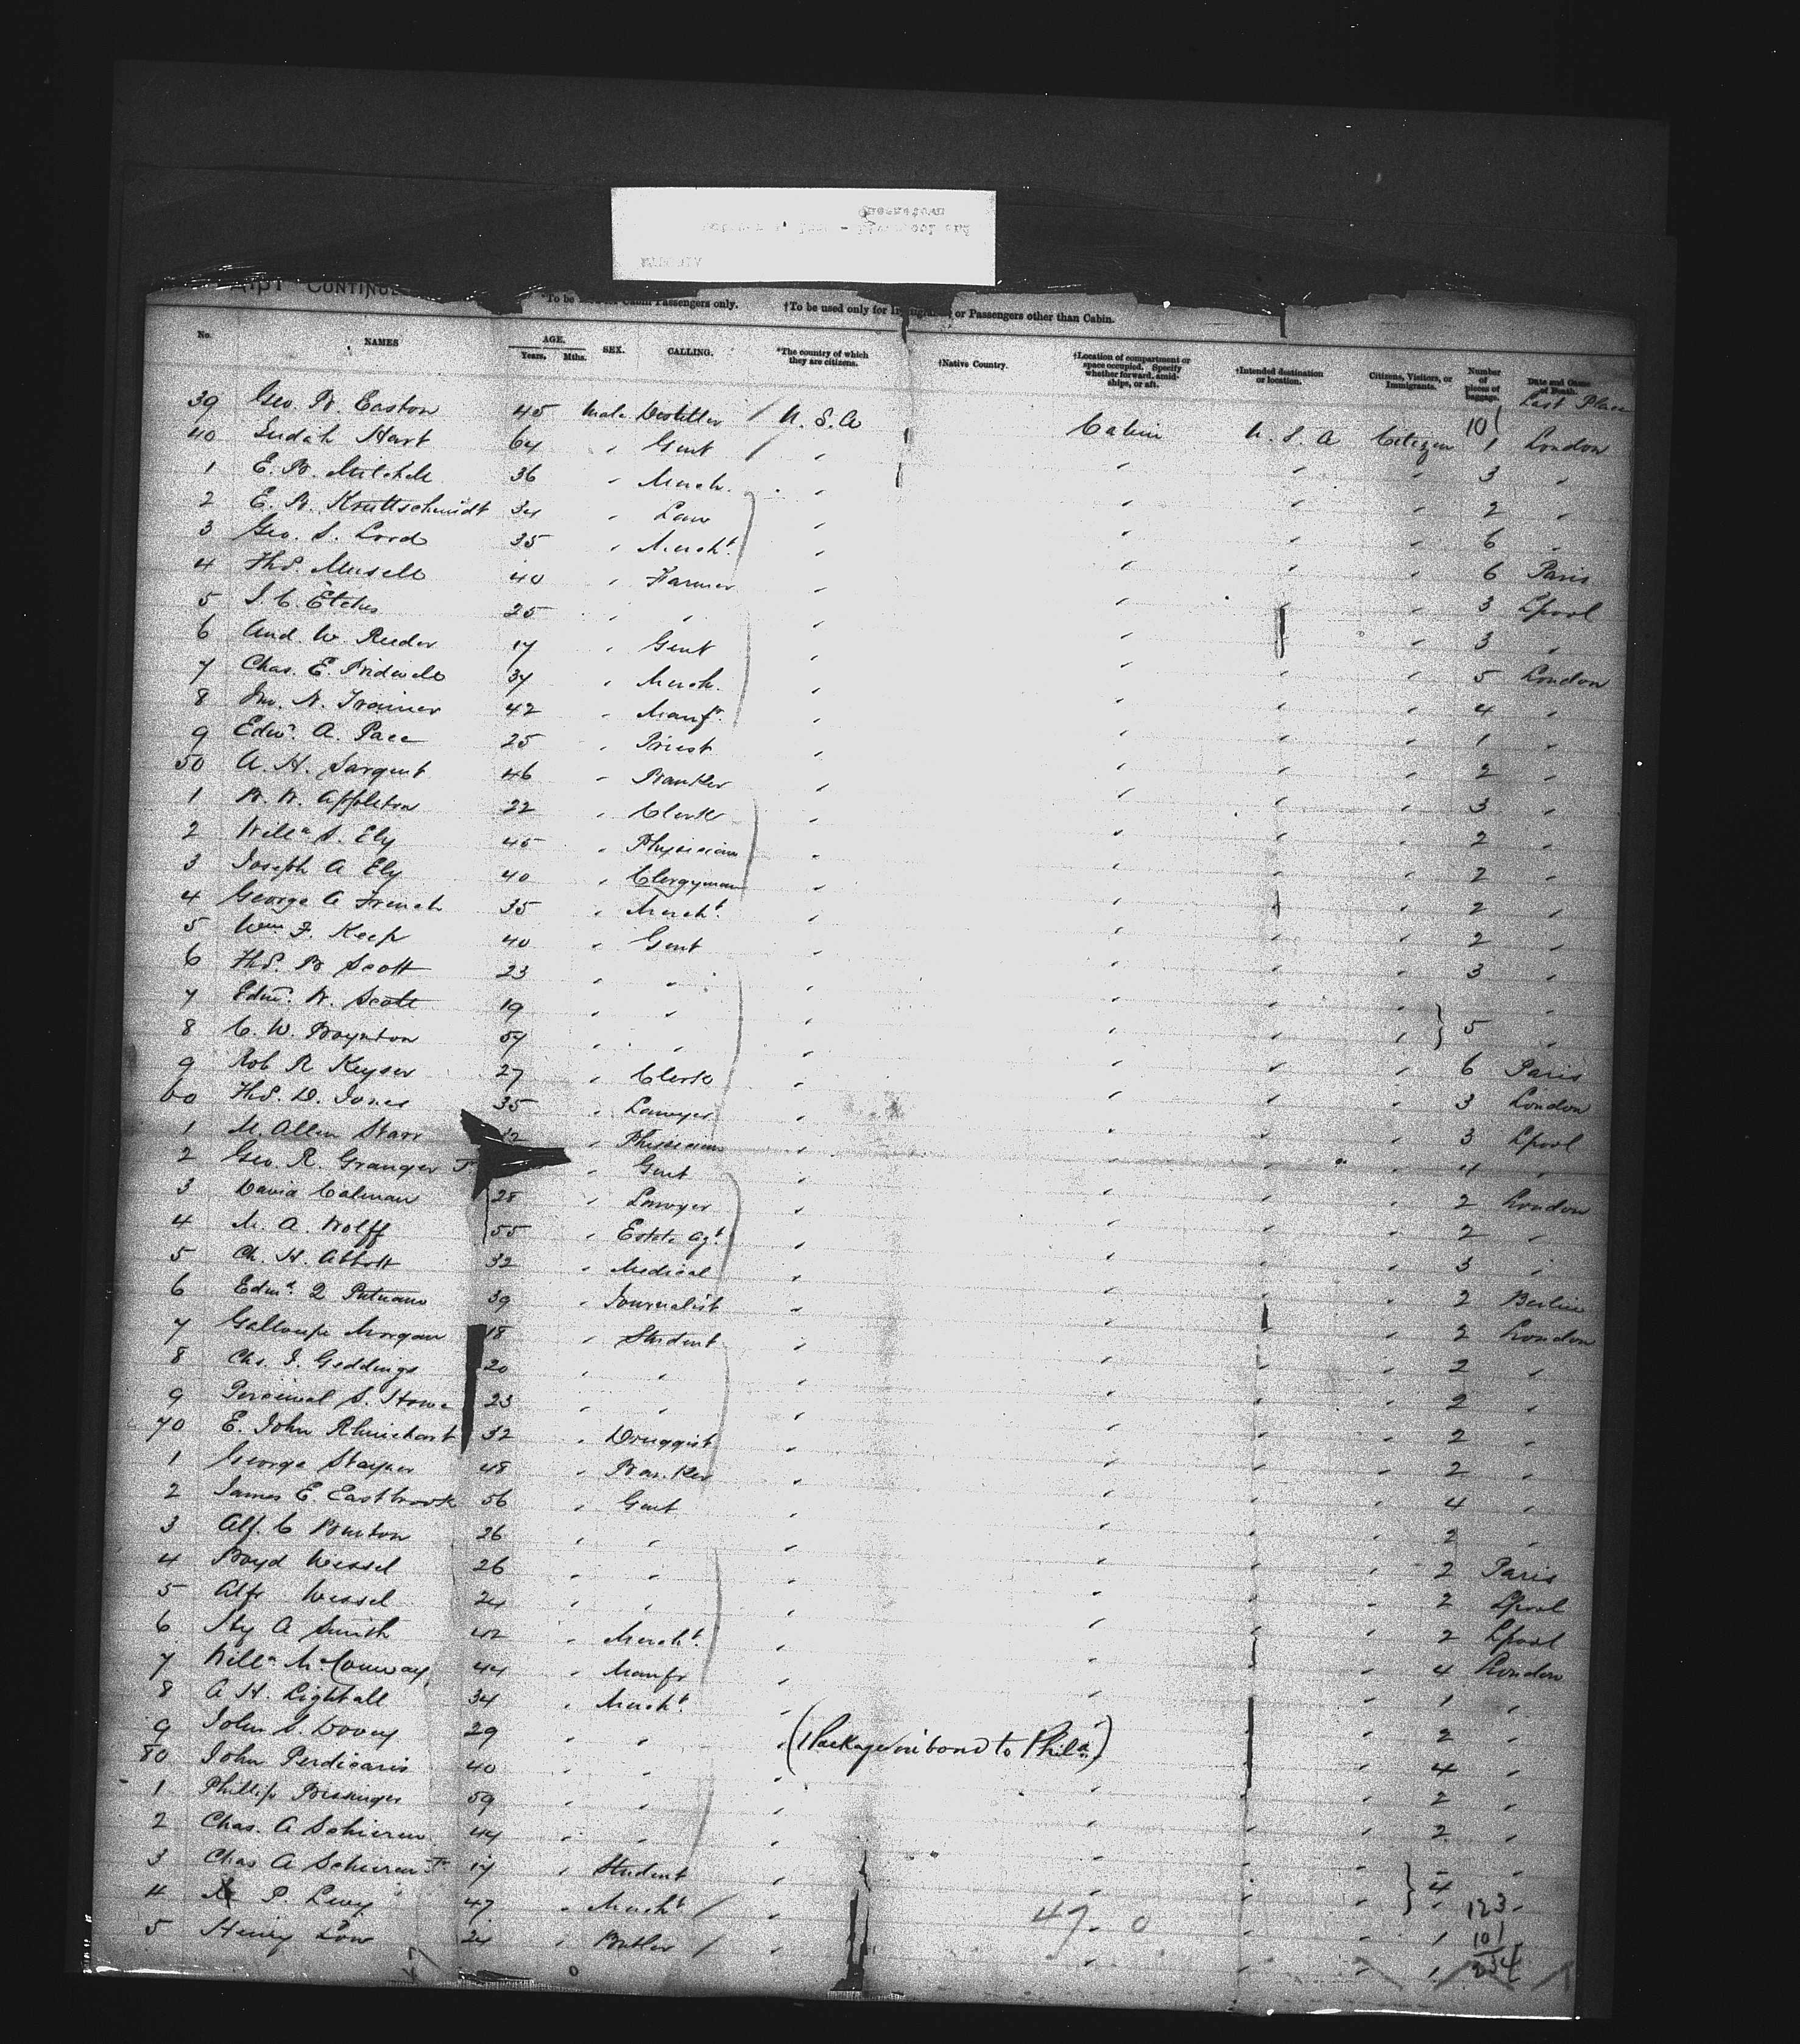 CONTINUE
*To be Cabin Passengers only. †To be used only for Immigrants or Passengers other than Cabin.
No. NAMES AGE. Years. Mths. SEX. CALLING. *The country of which they are citizens. †Native Country. †Location of compartment or space occupied. Specify whether forward, amidships, or aft. †Intended destination or location. Citizens, Visitors, or Immigrants. Number of pieces of baggage. Date and Cause of Death.
Last Place
101
39 Geo. W. Easton 45 Male Distiller / U.S.A Cabin U.S.A Citizen 1 London
40 Judah Hart 64 " Gent / " " " " 3 "
1 E. B. Mitchell 36 " Merch. " " " " 2 "
2 E. B. Kruttschmidt 34 " Law " " " " 6 "
3 Geo. S. Lord 35 " Mercht. " " " " 6 Paris
4 Thos. Musell 40 " Farmer " " " " 3 Lpool
5 J. C. Etches 25 " " " " " 3 "
6 And. W. Reeder 17 " Gent " " " " 5 London
7 Chas. E. Bidwell 37 " Merch. " " " " 4 "
8 Jno. N. Trainer 42 " Manfr. " " " " 1 "
9 Edwd. A. Pace 25 " Priest " " " " 2 "
50 A. H. Sargent 46 " Banker " " " " 3 "
1 W. W. Appleton 22 " Clerk " " " " 2 "
2 Willm S. Ely 45 " Physician " " " " 2 "
3 Joseph A Ely 40 " Clergyman " " " " 2 "
4 George A French 35 " Mercht. " " " " 2 "
5 Wm F. Keep 40 " Gent " " " " 3 "
6 Thos. B Scott 23 " " " " " " "
7 Edwd. W. Scott 19 " " " " " " } 5 "
8 C. W. Boynton 57 " " " " " " 6 Paris
9 Rob R Keyser 27 " Clerk " " " " 3 London
60 Thos. D. Jones 35 " Lawyer " " " " 3 Lpool
1 M. Allen Starr 32 " Physician " " " " 4 "
2 Geo. R. Granger Jr " Gent " " " " 2 London
3 David Calman 28 " Lawyer " " " " 2 "
4 M. A. Wolff 55 " Estate Agt. " " " " 3 "
5 Ch. H. Abbott 32 " Medical " " " " 2 Berlin
6 Edwd. Q Putnam 39 " Journalist " " " " 2 London
7 Galloupe Morgan 18 " Student " " " " 2 "
8 Chs. J. Geddings 20 " " " " " " 2 "
9 Percival S. Howe 23 " " " " " " 2 "
70 E. John Rhinehart 32 " Druggist " " " " 2 "
1 George Stayner 48 " Banker " " " " 4 "
2 James E. Eastbrook 56 " Gent " " " " 2 "
3 Alf. C Burton 26 " " " " " " 2 Paris
4 Boyd Wessel 26 " " " " " " 2 Lpool
5 Alfr Wessel 24 " " " " " " 2 Lpool
6 Hy A Smith 42 " Mercht. " " " " 4 London
7 Willm McConway 44 " Manfr " " " " 1 "
8 A. H. Lightall 34 " Mercht. " " " 2 "
9 John S. Dovey 29 " " " (1 Package in bond to Phila.) " " 4 "
80 John Perdicaris 40 " " " " " " 2 "
1 Phillip Bissinger 59 " " " " " " 2 "
2 Chas. A Schieren 44 " " " " " " "
3 Chas A Schieren Jr 17 " Student " " " " } 4 "
4 P. Levy 47 " Mercht / " 47 0 " " 1 123
5 Henry Low 24 " Butler / " " " " 1 101
234